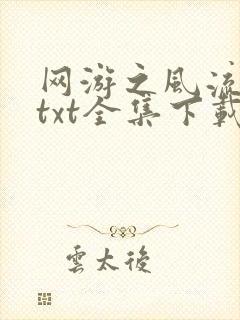 网游之风流
txt全集下载
雲太後